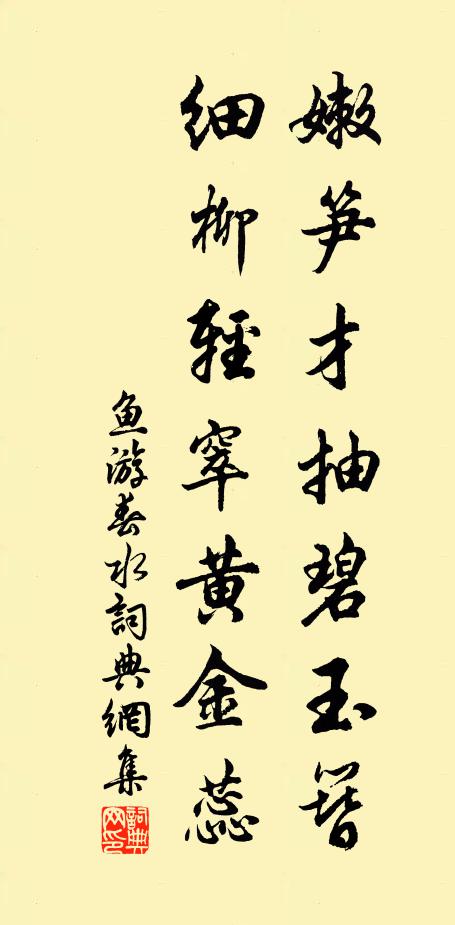 嫩笋才抽碧玉簪
细柳輕窣黄金蕊
鱼游春水詞典網集
詞典网印